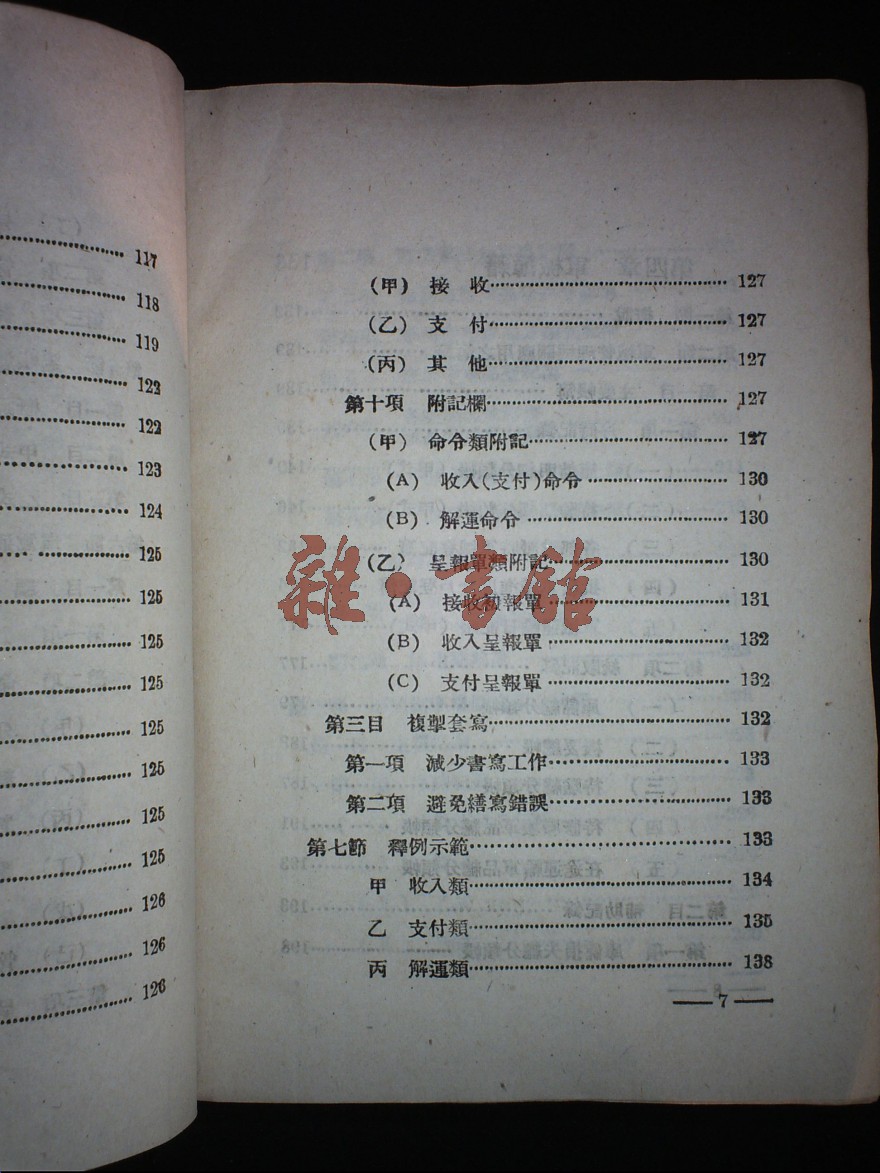 117
118
119
122
122
123
124
125
125
125
125
125
125
125
125
126
126
126
(甲) 接 收 127
(乙) 支 付 127
(丙) 其 他 127
第十項 附記欄 127
(甲) 命令類附記 127
(A) 收入(支付)命令 130
(B) 解運命令 130
(乙) 呈報單類附記 130
(A) 接收初報單 131
(B) 收入呈報單 132
(C) 支付呈報單 132
第三目 複掣套寫 132
第一項 減少書寫工作 133
第二項 避免繕寫錯誤 133
第七節 釋例示範 133
甲 收入類 134
乙 支付類 135
丙 解運類 138
7
雜·書館